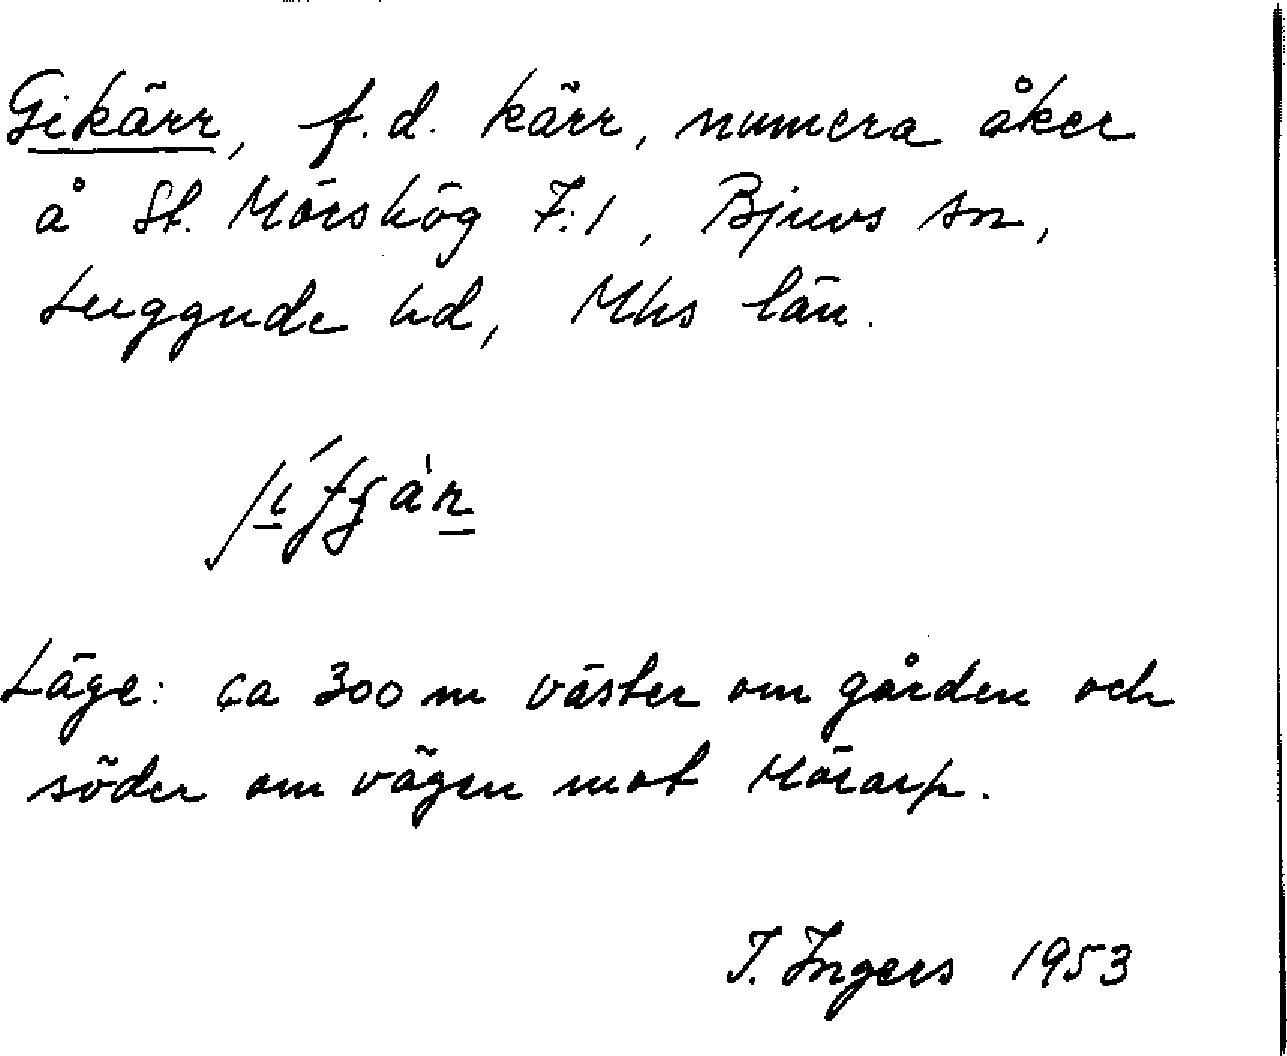 Gikärr, f.d. kärr, numera åker
å St. Mörshög 7:1, Bjuvs sn,
Luggude hd, Mhs län.
Läge: ca 300 m väster om gården och
söder om vägen mot Mörarp.
I. Ingers 1953